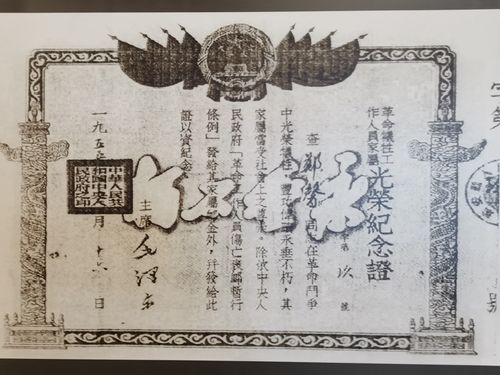 革命犧牲工
作人員家屬
光榮紀念證
字第 玖 號
查 同志在革命鬥爭
中光榮犧牲，豐功偉績永垂不朽，其
家屬當受社會上之尊崇。除依中央人
民政府「革命工作人員傷亡褒卹暫行
條例」發給其家屬卹金外，并發給此
證以資紀念。
主席 毛澤東
一九五 月十六日
中華人民共
和國中央人
民政府之印